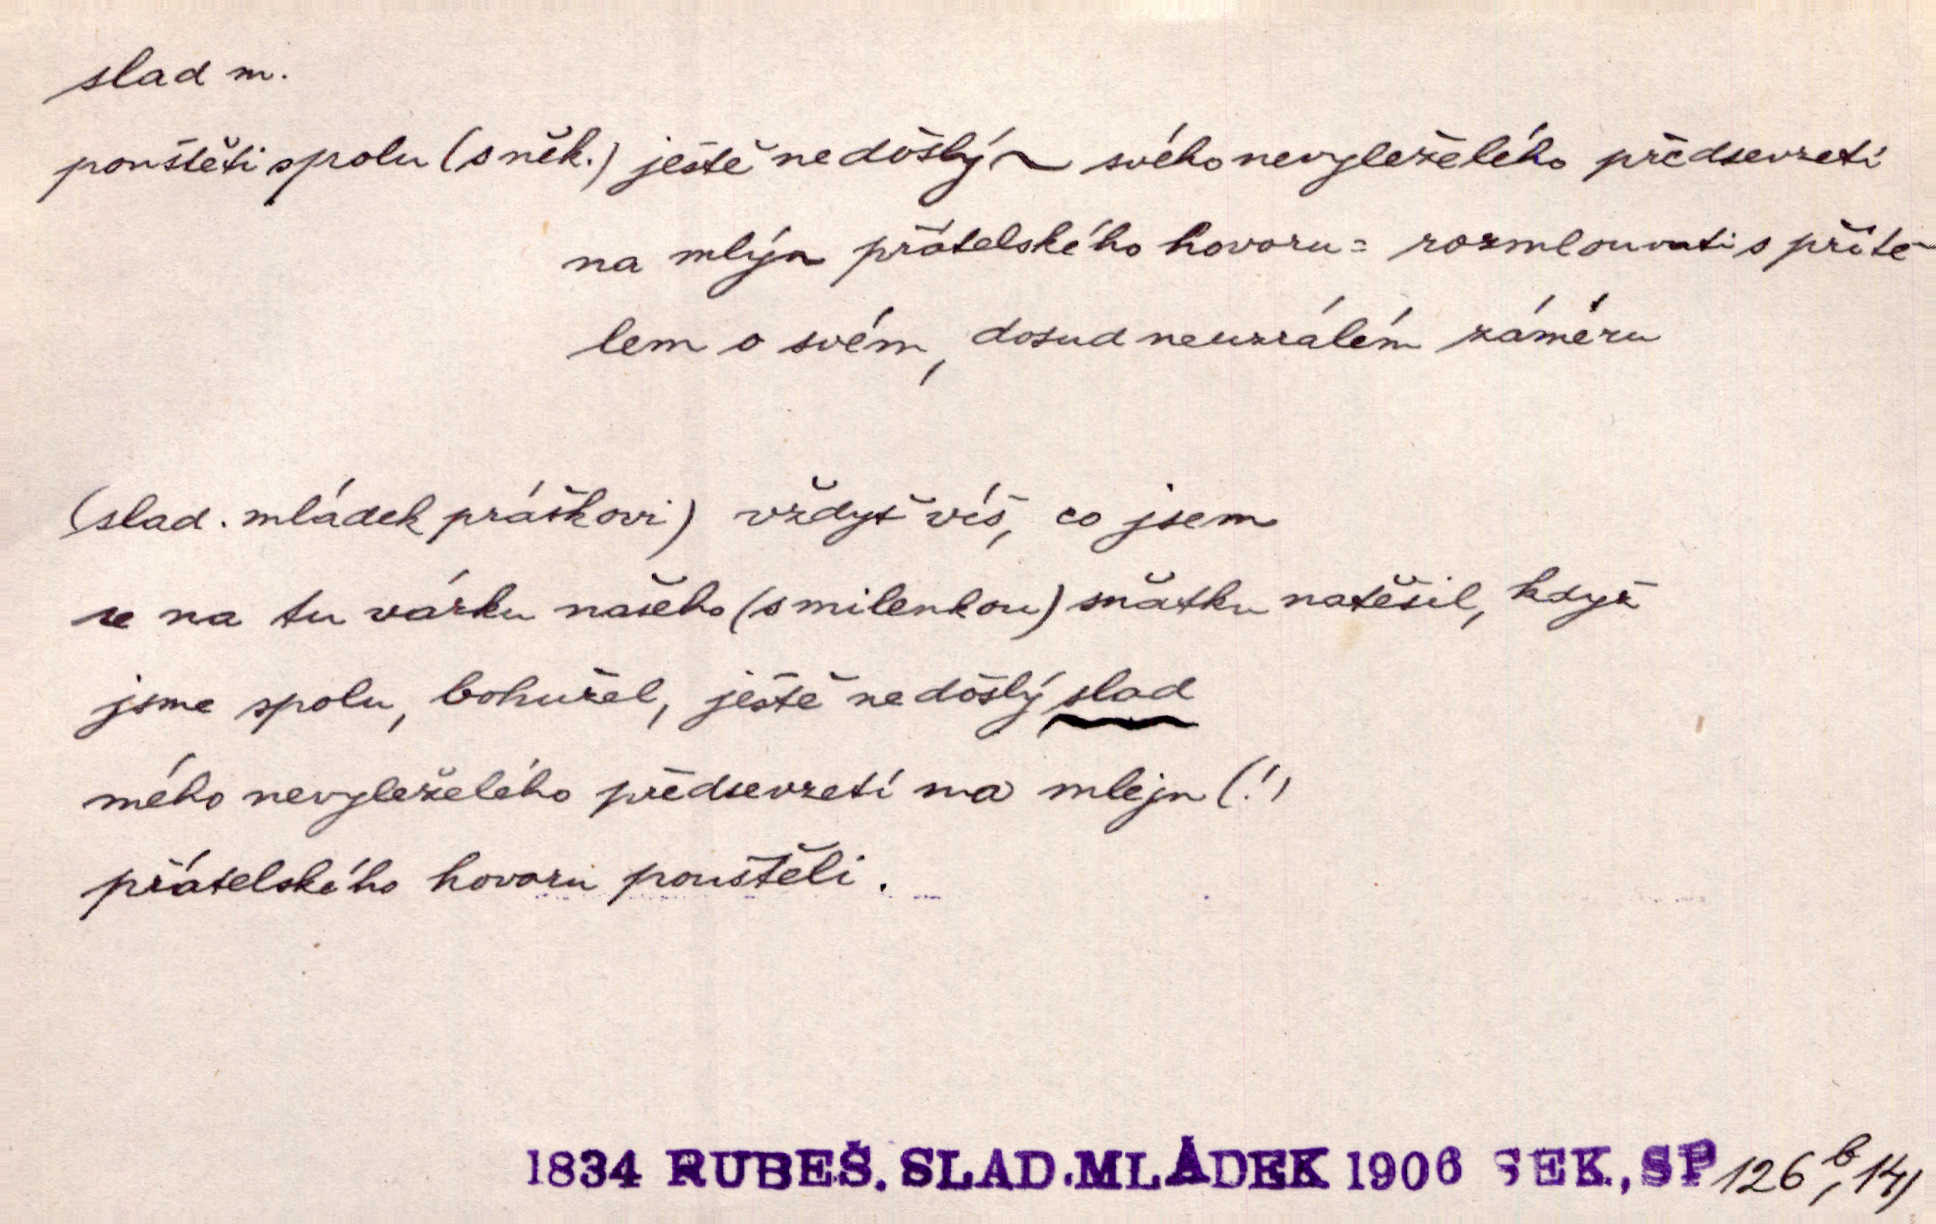 slad m.
pouštěti spolu (s něk.) ještě nedošlý ~ svého nevyleželého předsevzetí
na mlýn přátelského hovoru = rozmlouvati s příte-
lem o svém, dosud neuzrálém záměru
(slad. mládek práškovi) vždyť víš, co jsem
se na tu várku našeho (s milenkou) sňatku natěšil, když
jsme spolu, bohužel, ještě nedošlý slad
mého nevyleželého předsevzetí na mlejn (!)
přátelského hovoru pouštěli.
1834 RUBEŠ. SLAD. MLÁDEK 1906 SEK., SP 126 b, 14)